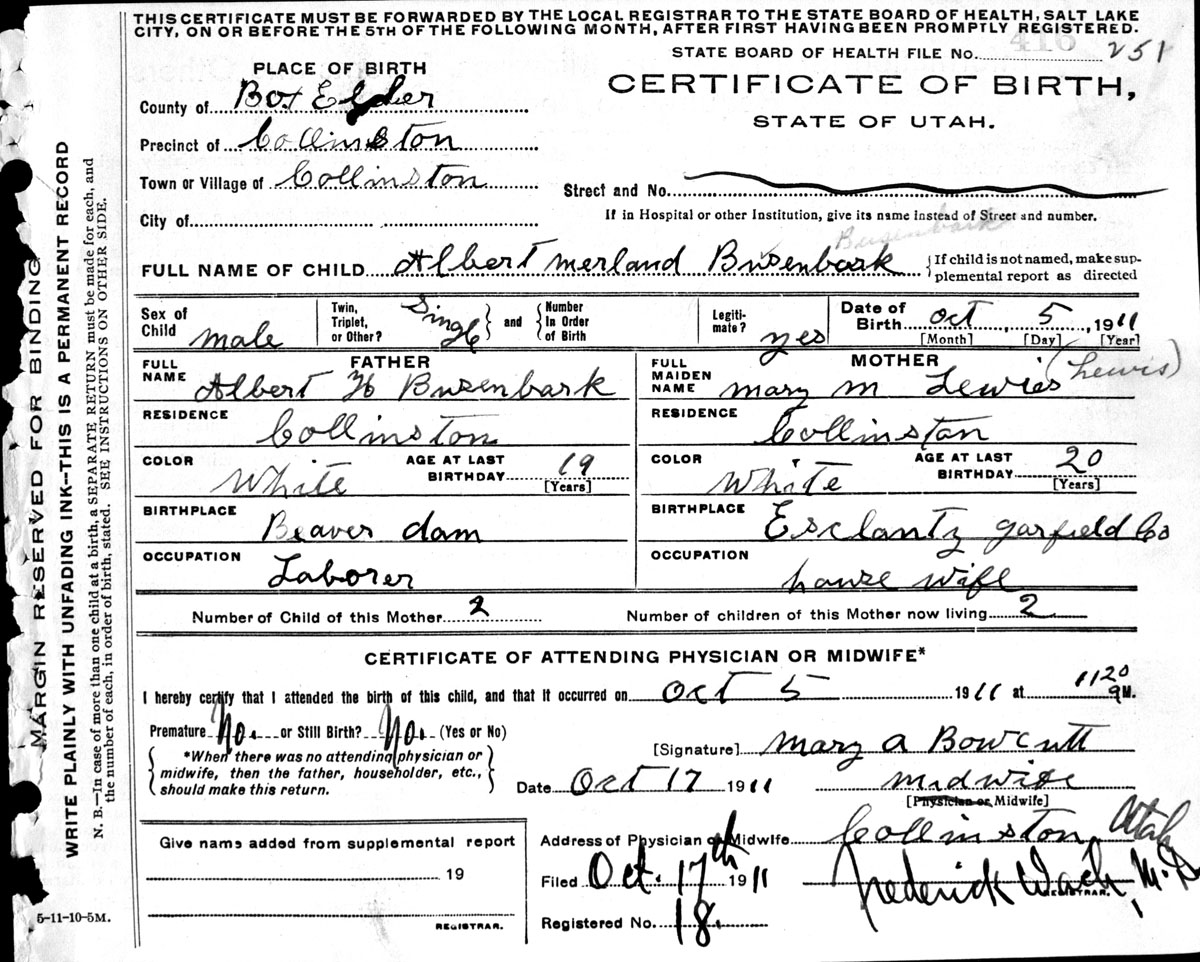 THIS CERTIFICATE MUST BE FORWARDED BY THE LOCAL REGISTRAR TO THE STATE BOARD OF HEALTH, SALT LAKE
CITY, ON OR BEFORE THE 5TH OF THE FOLLOWING MONTH, AFTER FIRST HAVING BEEN PROMPTLY REGISTERED.
STATE BOARD OF HEALTH FILE No. 416 251
PLACE OF BIRTH
CERTIFICATE OF BIRTH,
STATE OF UTAH.
County of Box Elder
Precinct of Collinston
Town or Village of Collinston
Street and No.
City of
If in Hospital or other Institution, give its name instead of Street and number.
Busenbark
FULL NAME OF CHILD Albert Merland Busenbark
{If child is not named, make sup-
plemental report as directed
Sex of Child male
Twin, Triplet, or Other? Single
and
Number In Order of Birth
Legiti-mate? yes
Date of Birth Oct, 5, 1911
[Month] [Day] [Year]
FATHER
FULL NAME Albert H Busenbark
RESIDENCE Collinston
COLOR White
AGE AT LAST BIRTHDAY 19
[Years]
BIRTHPLACE Beaver dam
OCCUPATION Laborer
MOTHER
FULL MAIDEN NAME mary m Lewies (Lewis)
RESIDENCE Collinstan
COLOR White
AGE AT LAST BIRTHDAY 20
[Years]
BIRTHPLACE Esclantz garfield Co
OCCUPATION house wife
Number of Child of this Mother 2
Number of children of this Mother now living 2
CERTIFICATE OF ATTENDING PHYSICIAN OR MIDWIFE*
I hereby certify that I attended the birth of this child, and that it occurred on Oct 5 1911 at 1120 M.
Premature No. or Still Birth? No. (Yes or No)
*When there was no attending physician or
midwife, then the father, householder, etc.,
should make this return.
[Signature] Mary A Bowcutt
Date Oct 17 1911
midwife
[Physician or Midwife]
Address of Physician or Midwife Collinston Utah
Filed Oct. 17th 1911
Frederick Wach, M.D
REGISTRAR.
Registered No. 18.
Give name added from supplemental report
19
REGISTRAR.
5-11-10-5M.
MARGIN RESERVED FOR BINDING
WRITE PLAINLY WITH UNFADING INK—THIS IS A PERMANENT RECORD
N. B.—In case of more than one child at a birth, a SEPARATE RETURN must be made for each, and
the number of each, in order of birth, stated. SEE INSTRUCTIONS ON OTHER SIDE.